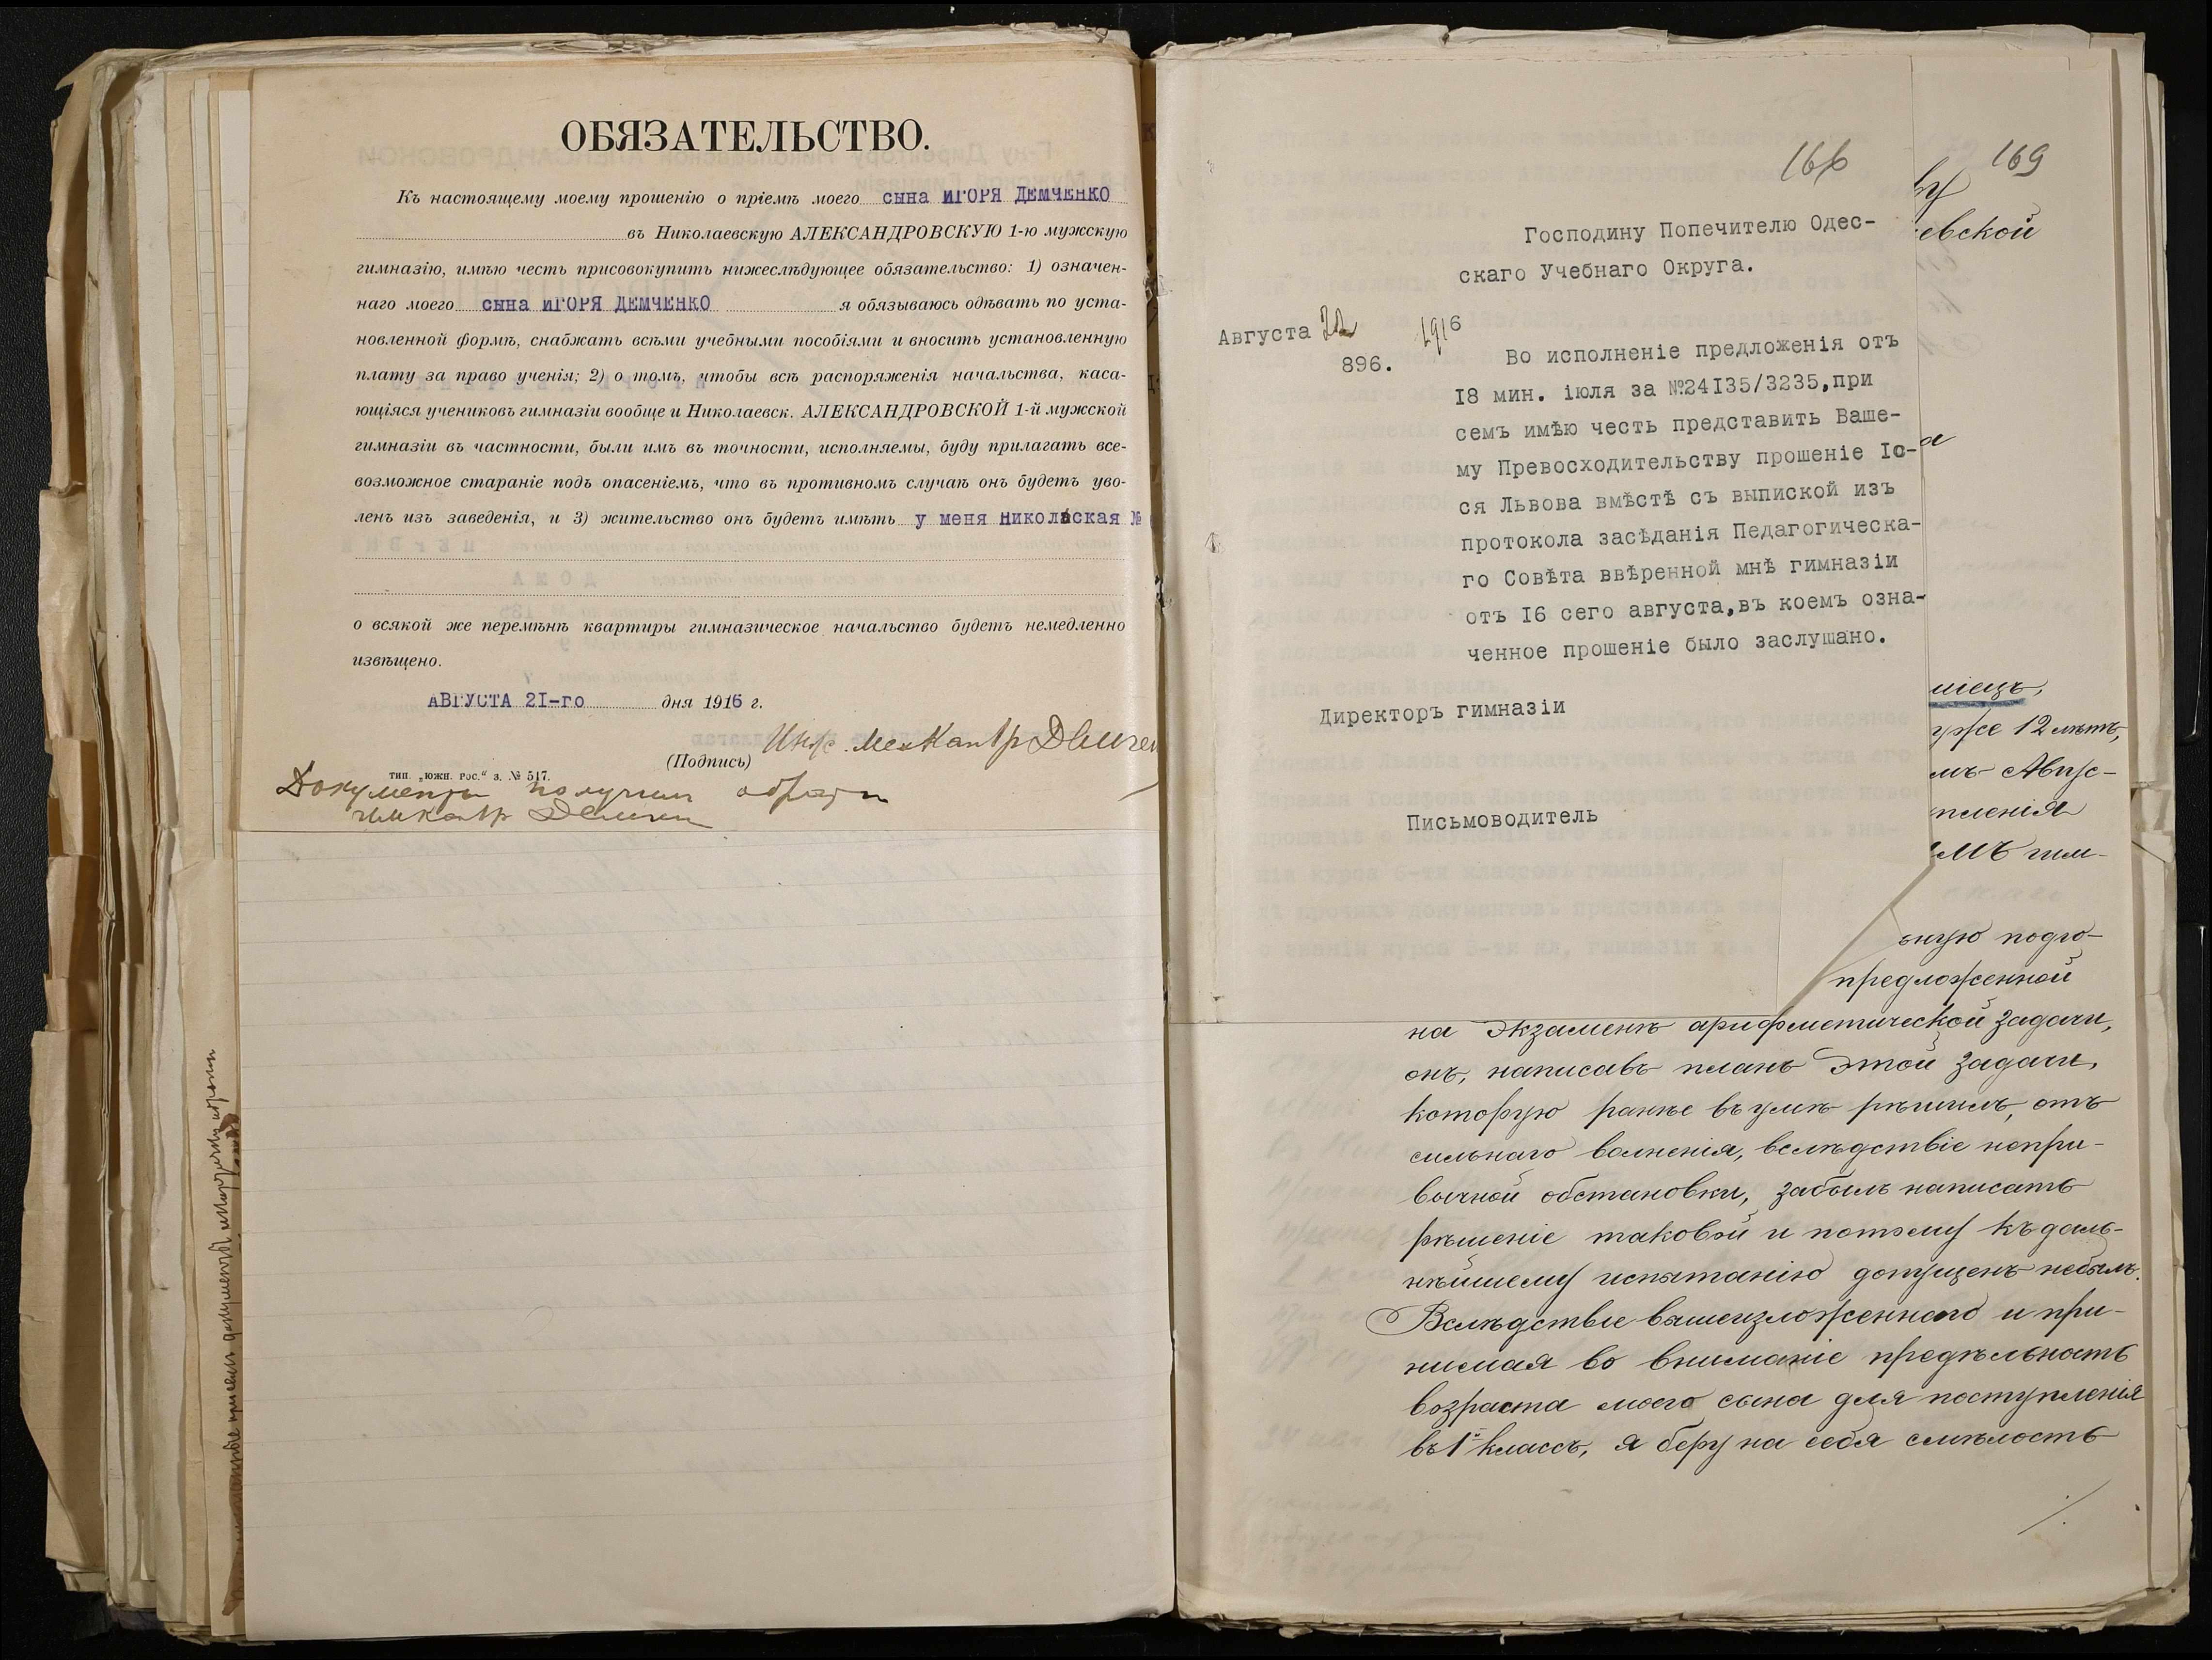 ОБЯЗАТЕЛЬСТВО.
Къ настоящему моему прошенію о пріемѣ моего сына ИГОРЯ ДЕМЧЕНКО
въ Николаевскую АЛЕКСАНДРОВСКУЮ 1-ю мужскую
гимназію, имѣю честь присовокупить нижеслѣдующее обязательство: 1) означен-
наго моего сына ИГОРЯ ДЕМЧЕНКО я обязываюсь одѣвать по уста-
новленной формѣ, снабжать всѣми учебными пособіями и вносить установленную
плату за право ученія; 2) о томъ, чтобы всѣ распоряженія начальства, каса-
ющіяся учениковъ гимназіи вообще и Николаевск. АЛЕКСАНДРОВСКОЙ 1-й мужской
гимназіи въ частности, были имъ въ точности, исполняемы, буду прилагать все-
возможное стараніе подъ опасеніемъ, что въ противномъ случаѣ онъ будетъ уво-
ленъ изъ заведенія, и 3) жительство онъ будетъ имѣть у меня Николаская №
о всякой же перемѣнѣ квартиры гимназическое начальство будетъ немедленно
извѣщено.
АВГУСТА 2I-го дня 1916 г.
(Подпись)
тип. „южн. рос.“ з. № 517.
Документы получил обратно
166
169
ву
евской
Господину Попечителю Одес-
скаго Учебнаго Округа.
Августа 22 1916
896.
Во исполненіе предложенія отъ
I8 мин. іюля за №24I35/3235,при
семъ имѣю честь представить Ваше-
му Превосходительству прошеніе Іо-
ся Львова вмѣстѣ съ выпиской изъ
протокола засѣданія Педагогическа-
го Совѣта ввѣренной мнѣ гимназіи
отъ I6 сего августа,въ коемъ озна-
ченное прошеніе было заслушано.
Директоръ гимназіи
Письмоводитель
уже 12 лѣтъ,
мъ Авгус-
пленія
мъ гим-
ьную подго-
предложенной
на экзаменѣ арифметической задачи,
онъ, написавъ планъ этой задачи,
которую ранѣе въ умѣ рѣшилъ, отъ
сильнаго волненія, вслѣдствіе непри-
вычной обстановки, забылъ написать
рѣшеніе таковой и потому къ даль-
нѣйшему испытанію допущенъ небылъ.
Вслѣдствіе вышеизложеннаго и при-
нимая во вниманіе предѣльность
возраста моего сына для поступленія
въ 1й классъ, я беру на себя смѣлость